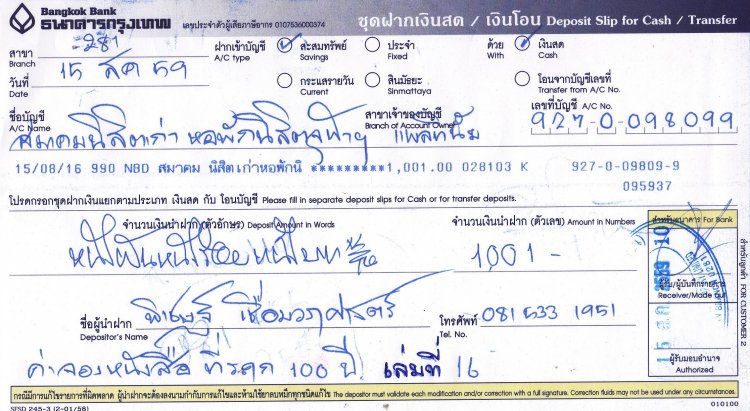 Bangkok Bank
ธนาคารกรุงเทพ เลขประจำตัวผู้เสียภาษีอากร 0107536000374 ชุดฝากเงินสด / เงินโอน Deposit Slip for Cash / Transfer
สาขา 281 ฝากเข้าบัญชี สะสมทรัพย์ ประจำ ด้วย เงินสด
Branch A/C type Savings Fixed With Cash
วันที่ 15 สค 59 กระแสรายวัน สินมัธยะ โอนจากบัญชีเลขที่
Date Current Sinmattaya Transfer from A/C No.
ชื่อบัญชี สาขาเจ้าของบัญชี เลขที่บัญชี A/C No.
A/C Name Branch of Account Owner 927-0-098099
สมาคมนิสิตเก่า หอพักนิสิตจุฬาฯ เพลินนั้ม
15/08/16 990 NBD สมาคม นิสิตเก่าหอพักนิ *********1,001.00 028103 K 927-0-09809-9
095937
โปรดกรอกชุดฝากเงินแยกตามประเภท เงินสด กับ โอนบัญชี Please fill in separate deposit slips for Cash or for transfer deposits.
จำนวนเงินนำฝาก (ตัวอักษร) Deposit Amount in Words จำนวนเงินนำฝาก (ตัวเลข) Amount in Numbers สำหรับธนาคาร For Bank
1001 -
15 ส.ค. 2559
ผู้รับ/ผู้บันทึกรายการ
Receiver/Made out
ชื่อผู้นำฝาก พิเชษฐ์ เชื่อมวราศาสตร์ โทรศัพท์ 081 533 1951
Depositor's Name Tel. No.
ค่าจองหนังสือ ที่ระลึก 100 ปี เล่มที่ 16
ผู้รับมอบอำนาจ
Authorized
สำหรับลูกค้า FOR CUSTOMER 2
กรณีมีการแก้ไขรายการที่ผิดพลาด ผู้นำฝากจะต้องลงนามกำกับการแก้ไขและห้ามใช้ยาลบหมึกทุกชนิดแก้ไข The depositor must validate each modification and/or correction with a full signature. Correction fluids may not be used under any circumstances.
SFSD 245-3 (2-01/58) 010100